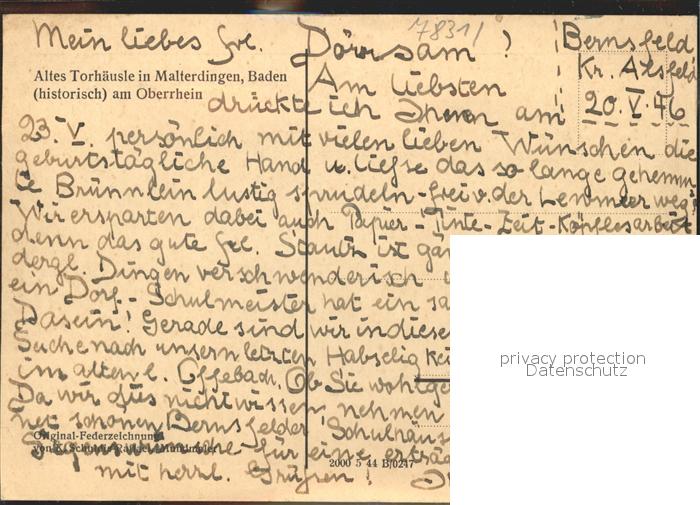 7831/
Bernsfeld
Kr. Alsfeld
20. V. 46
Mein liebes Frl. Dörrsam!
Altes Torhäusle in Malterdingen, Baden
(historisch) am Oberrhein
Am liebsten
drückte ich Ihnen am
23. V. persönlich mit vielen lieben Wünschen die
geburtstägliche Hand u. liesse das so lange gehemm
te Brünnlein lustig sprudeln - frei v. der weg!
Wir ersparten dabei auch Papier - Tinte - Zeit - Köpflesarbeit
denn das gute Frl. ist
dergl. Dingen verschwenderisch
ein Dorf - Schulmeister hat ein
Dasein! Gerade sind wir in
Suche nach unsern letzten Habselig
im alten l. Offebach. Ob Sie
Da wir dies nicht wissen, nehmen
schönen Bernsfelder
für eine
mit herzl. Grüßen!
Original-Federzeichnung
2000 5 44 B/0247
privacy protection
Datenschutz